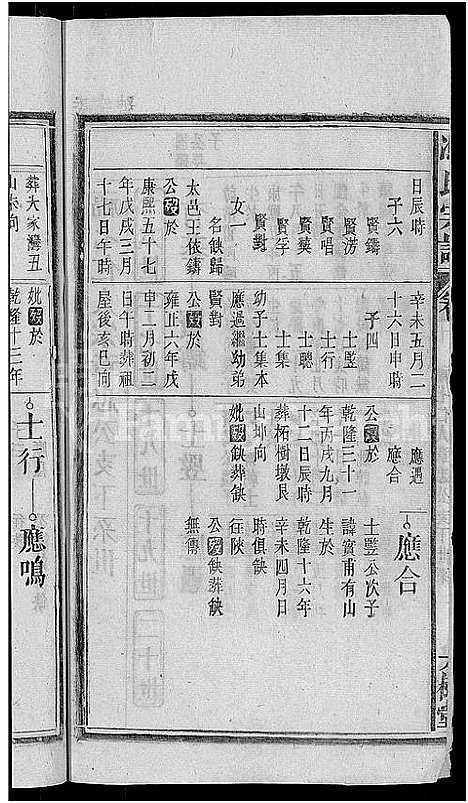 日辰時
子六
賢鑄
賢澇
賢唱
賢筴
賢孚
賢對
女一
名鉄歸
太邑王依鑄
公歿於
康熙五十七
年戊戌三月
十七日午時
葬大家灣丑
山未向
辛未五月二
十六日申時
子四
士豎
士行
士聰
士集
幼子士集本
應過繼幼弟
賢對
公歿於
雍正六年戊
申二月初二
日午時葬祖
屋後亥巳向
妣歿於
乾隆十三年
應遇
應合
公歿於
乾隆三十一
年丙戌九月
十二日辰時
葬柘樹墩艮
山坤向
妣歿缺葬缺
士行
應合
士豎公次子
諱賓甫有山
生於
乾隆十六年
辛未四月日
時俱缺
往陝
公歿缺葬缺
無傳
應鳴
氏宗譜